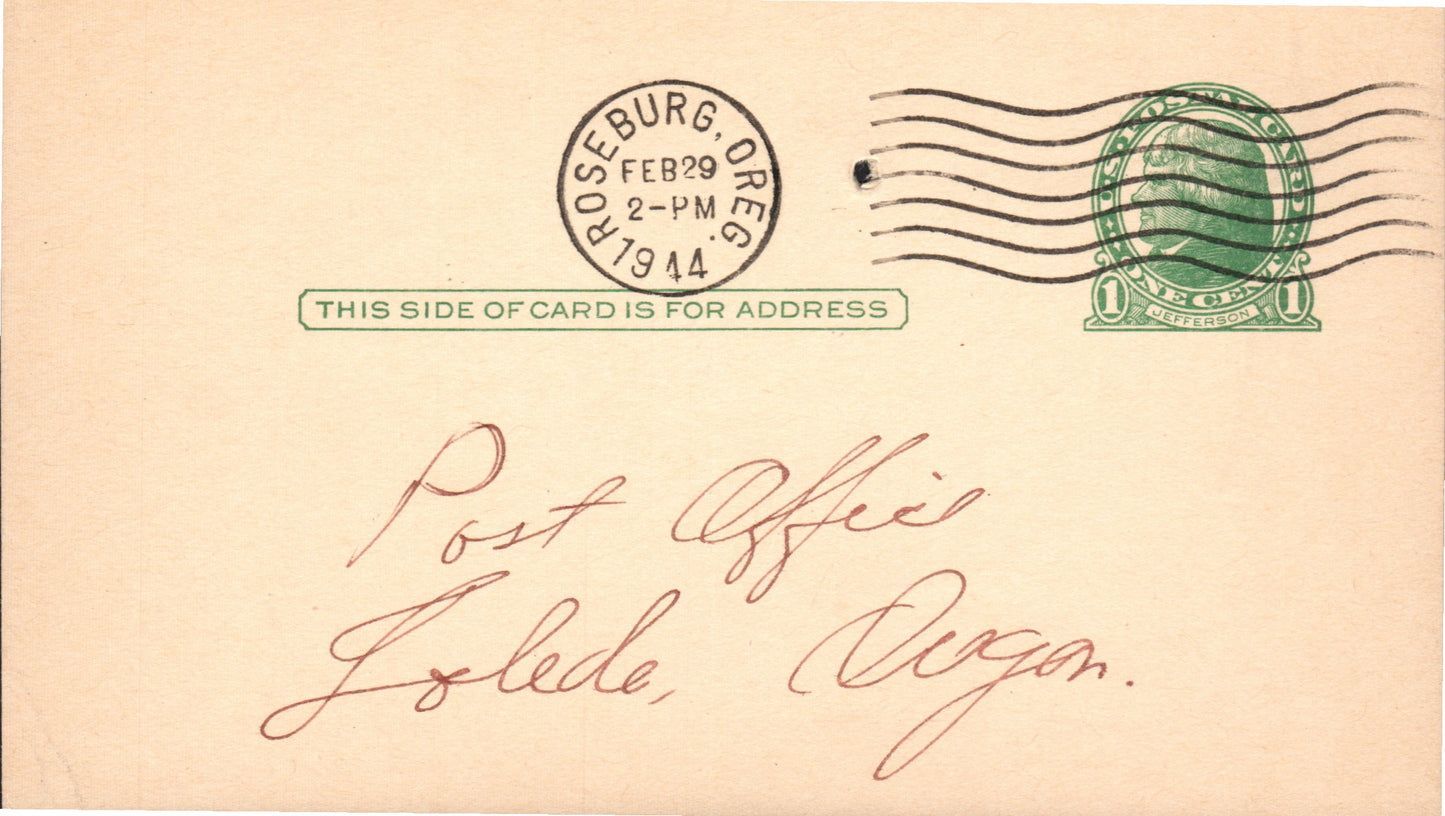 ROSEBURG, OREG.
FEB 29
2-PM
1944
U.S. POSTAL CARD
ONE CENT
1 JEFFERSON 1
THIS SIDE OF CARD IS FOR ADDRESS
Post Office
Toledo, Oregon.